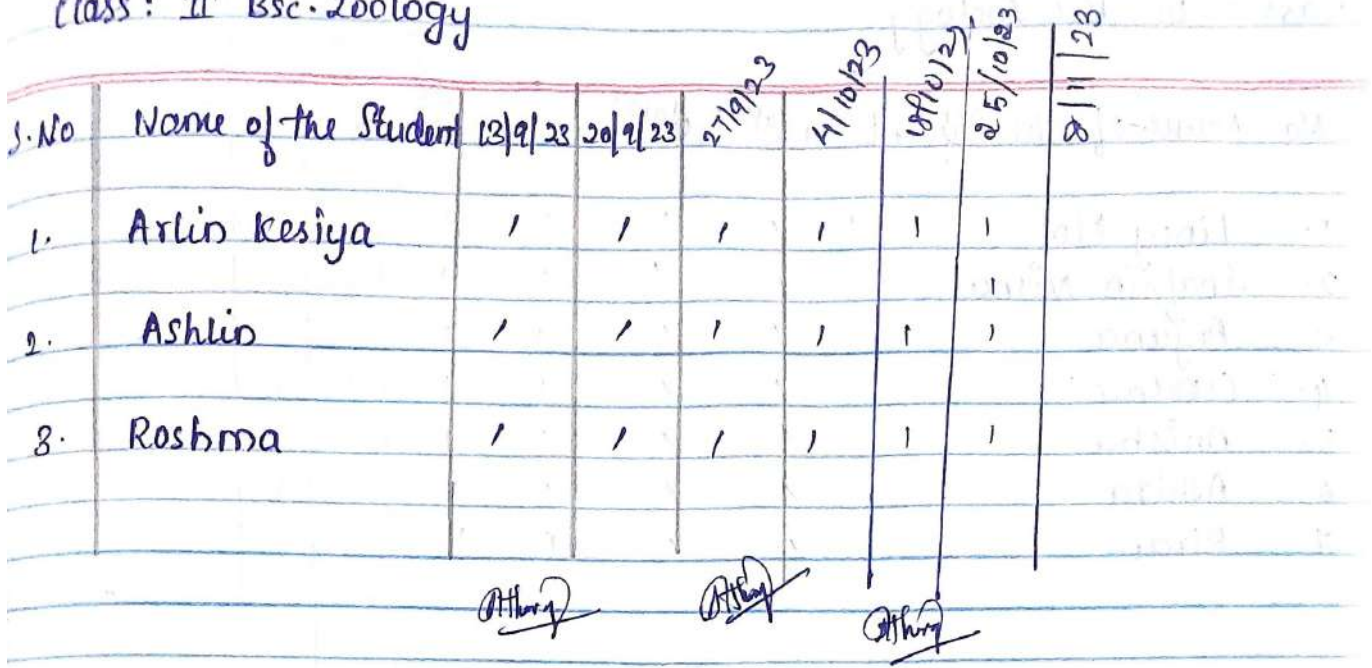 Class: II Bsc. Zoology
S.No Name of the Student 13/9/23 20/9/23 27/9/23 4/10/23 18/10/23 25/10/23 8/11/23
1. Arlin Kesiya / / / / / /
2. Ashlin / / / / / /
3. Roshma / / / / / /